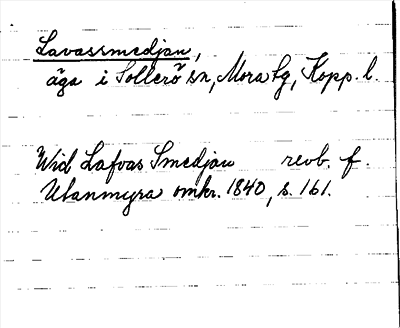 Lavassmedjan,
äga i Sollerö sn, Mora tg, Kopp. l.
Wid Lafvas Smedjan revb. f.
Utanmyra omkr. 1840, s. 161.